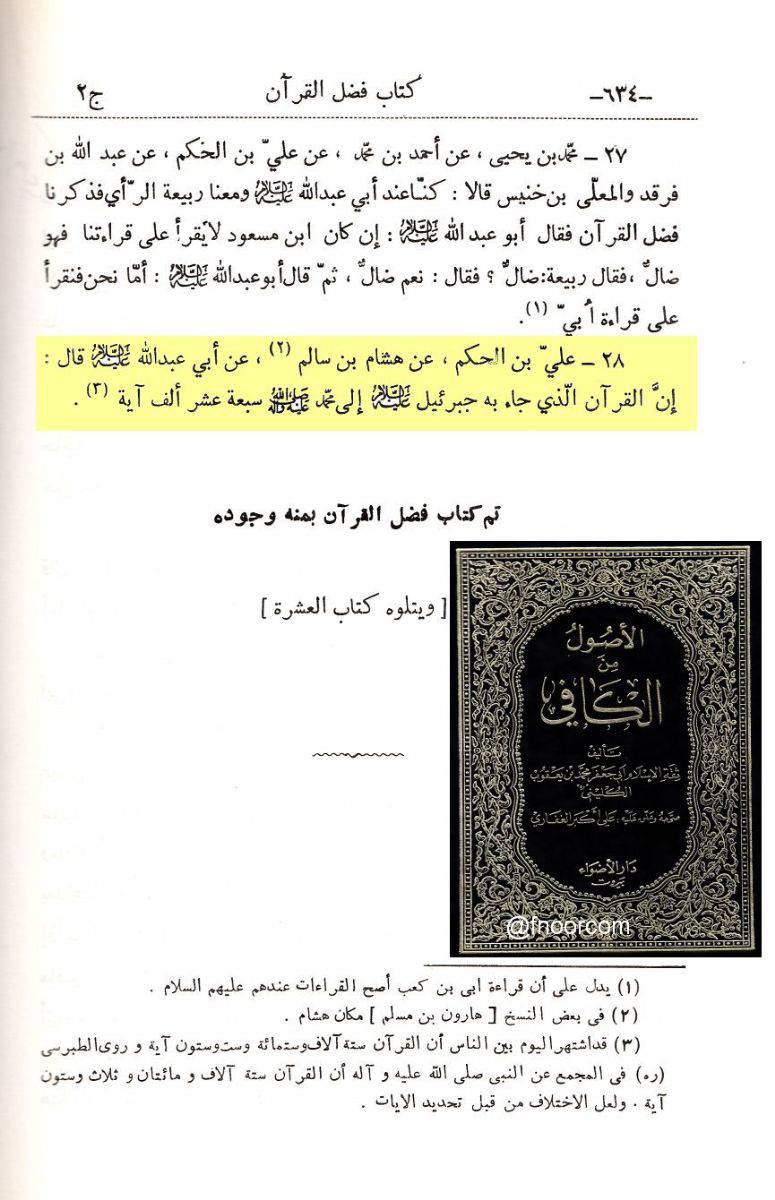 ج۲ كتاب فضل القرآن -٦٣٤-
٢٧ - محمدبن يحيى ، عن أحمد بن محمد ، عن عليّ بن الحكم ، عن عبد الله بن
فرقد والمعلّى بن خنيس قالا : كنّا عند أبي عبدالله عليه السلام ومعنا ربيعة الرّأي فذكرنا
فضل القرآن فقال أبو عبد الله عليه السلام : إن كان ابن مسعود لا يقرأ على قراءتنا فهو
ضالٌّ ، فقال ربيعة: ضالٌّ ؟ فقال : نعم ضالٌّ ، ثمّ قال أبو عبدالله عليه السلام : أمّا نحن فنقرأ
على قراءة أُبيّ (١).
٢٨ - عليّ بن الحكم ، عن هشام بن سالم (٢) ، عن أبي عبدالله عليه السلام قال :
إنَّ القرآن الّذي جاء به جبرئيل عليه السلام إلى محمد صلى الله عليه وآله سبعة عشر ألف آية (٣) .
تم كتاب فضل القرآن بمنه وجوده
[ ويتلوه كتاب العشرة ]
الأصول
من
الكافي
تأليف
ثقة الإسلام أبي جعفر محمد بن يعقوب
الكليني
صححه وعلق عليه : علي أكبر الغفاري
دار الأضواء
بيروت
@fnoorcom
(١) يدل على أن قراءة ابى بن كعب أصح القراءات عندهم عليهم السلام .
(٢) فى بعض النسخ [ هارون بن مسلم ] مكان هشام .
(٣) قد اشتهر اليوم بين الناس أن القرآن ستة آلاف وستمائة وست وستون آية و روى الطبرسى
(ره) فى المجمع عن النبى صلى الله عليه و آله أن القرآن ستة آلاف و مائتان و ثلاث وستون
آية . ولعل الاختلاف من قبل تحديد الايات .